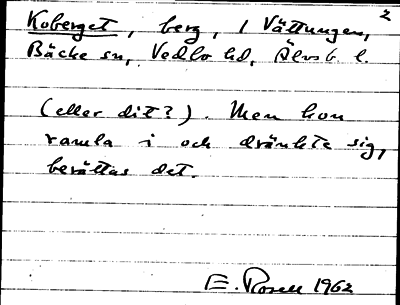 2
Koberget, berg, i Vättungen,
Bäcke sn, Vedbo hd, Älvsb. l.
(eller dit?). Men hon
ramla i och dränkte sig,
berättas det.
E. Rosell 1962